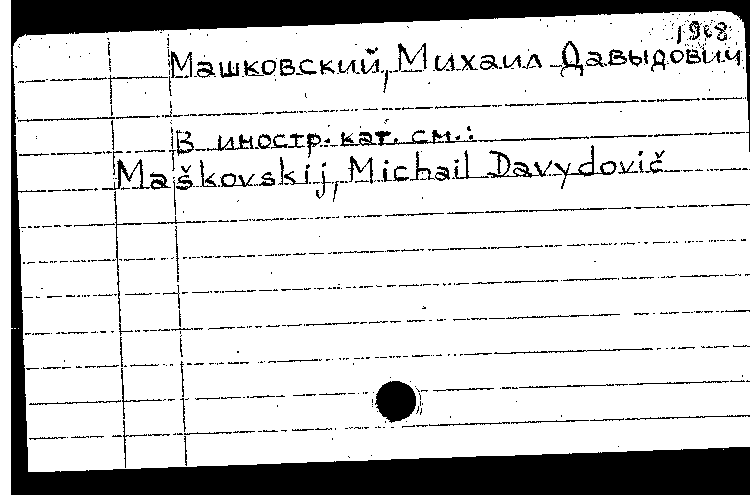 1968
Машковский, Михаил Давыдович
В иностр. кат. см.:
Maškovskij, Michail Davydovič